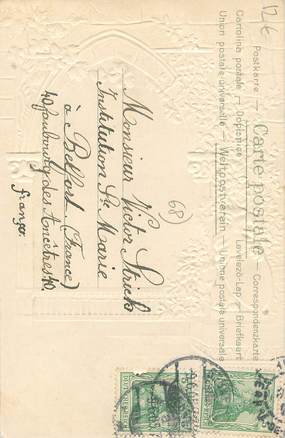 12€
Postkarte — Carte postale — Correspondenzkarte
Cartolina postale — Dopisnice — Levelezö-Lap — Briefkaart
Union postale universelle — Weltpostverein — Unione postale universale
68)
Monsieur Victor Strich
Institution Ste Marie
à Belfort (France)
40 faubourg des Ancêtres 40.